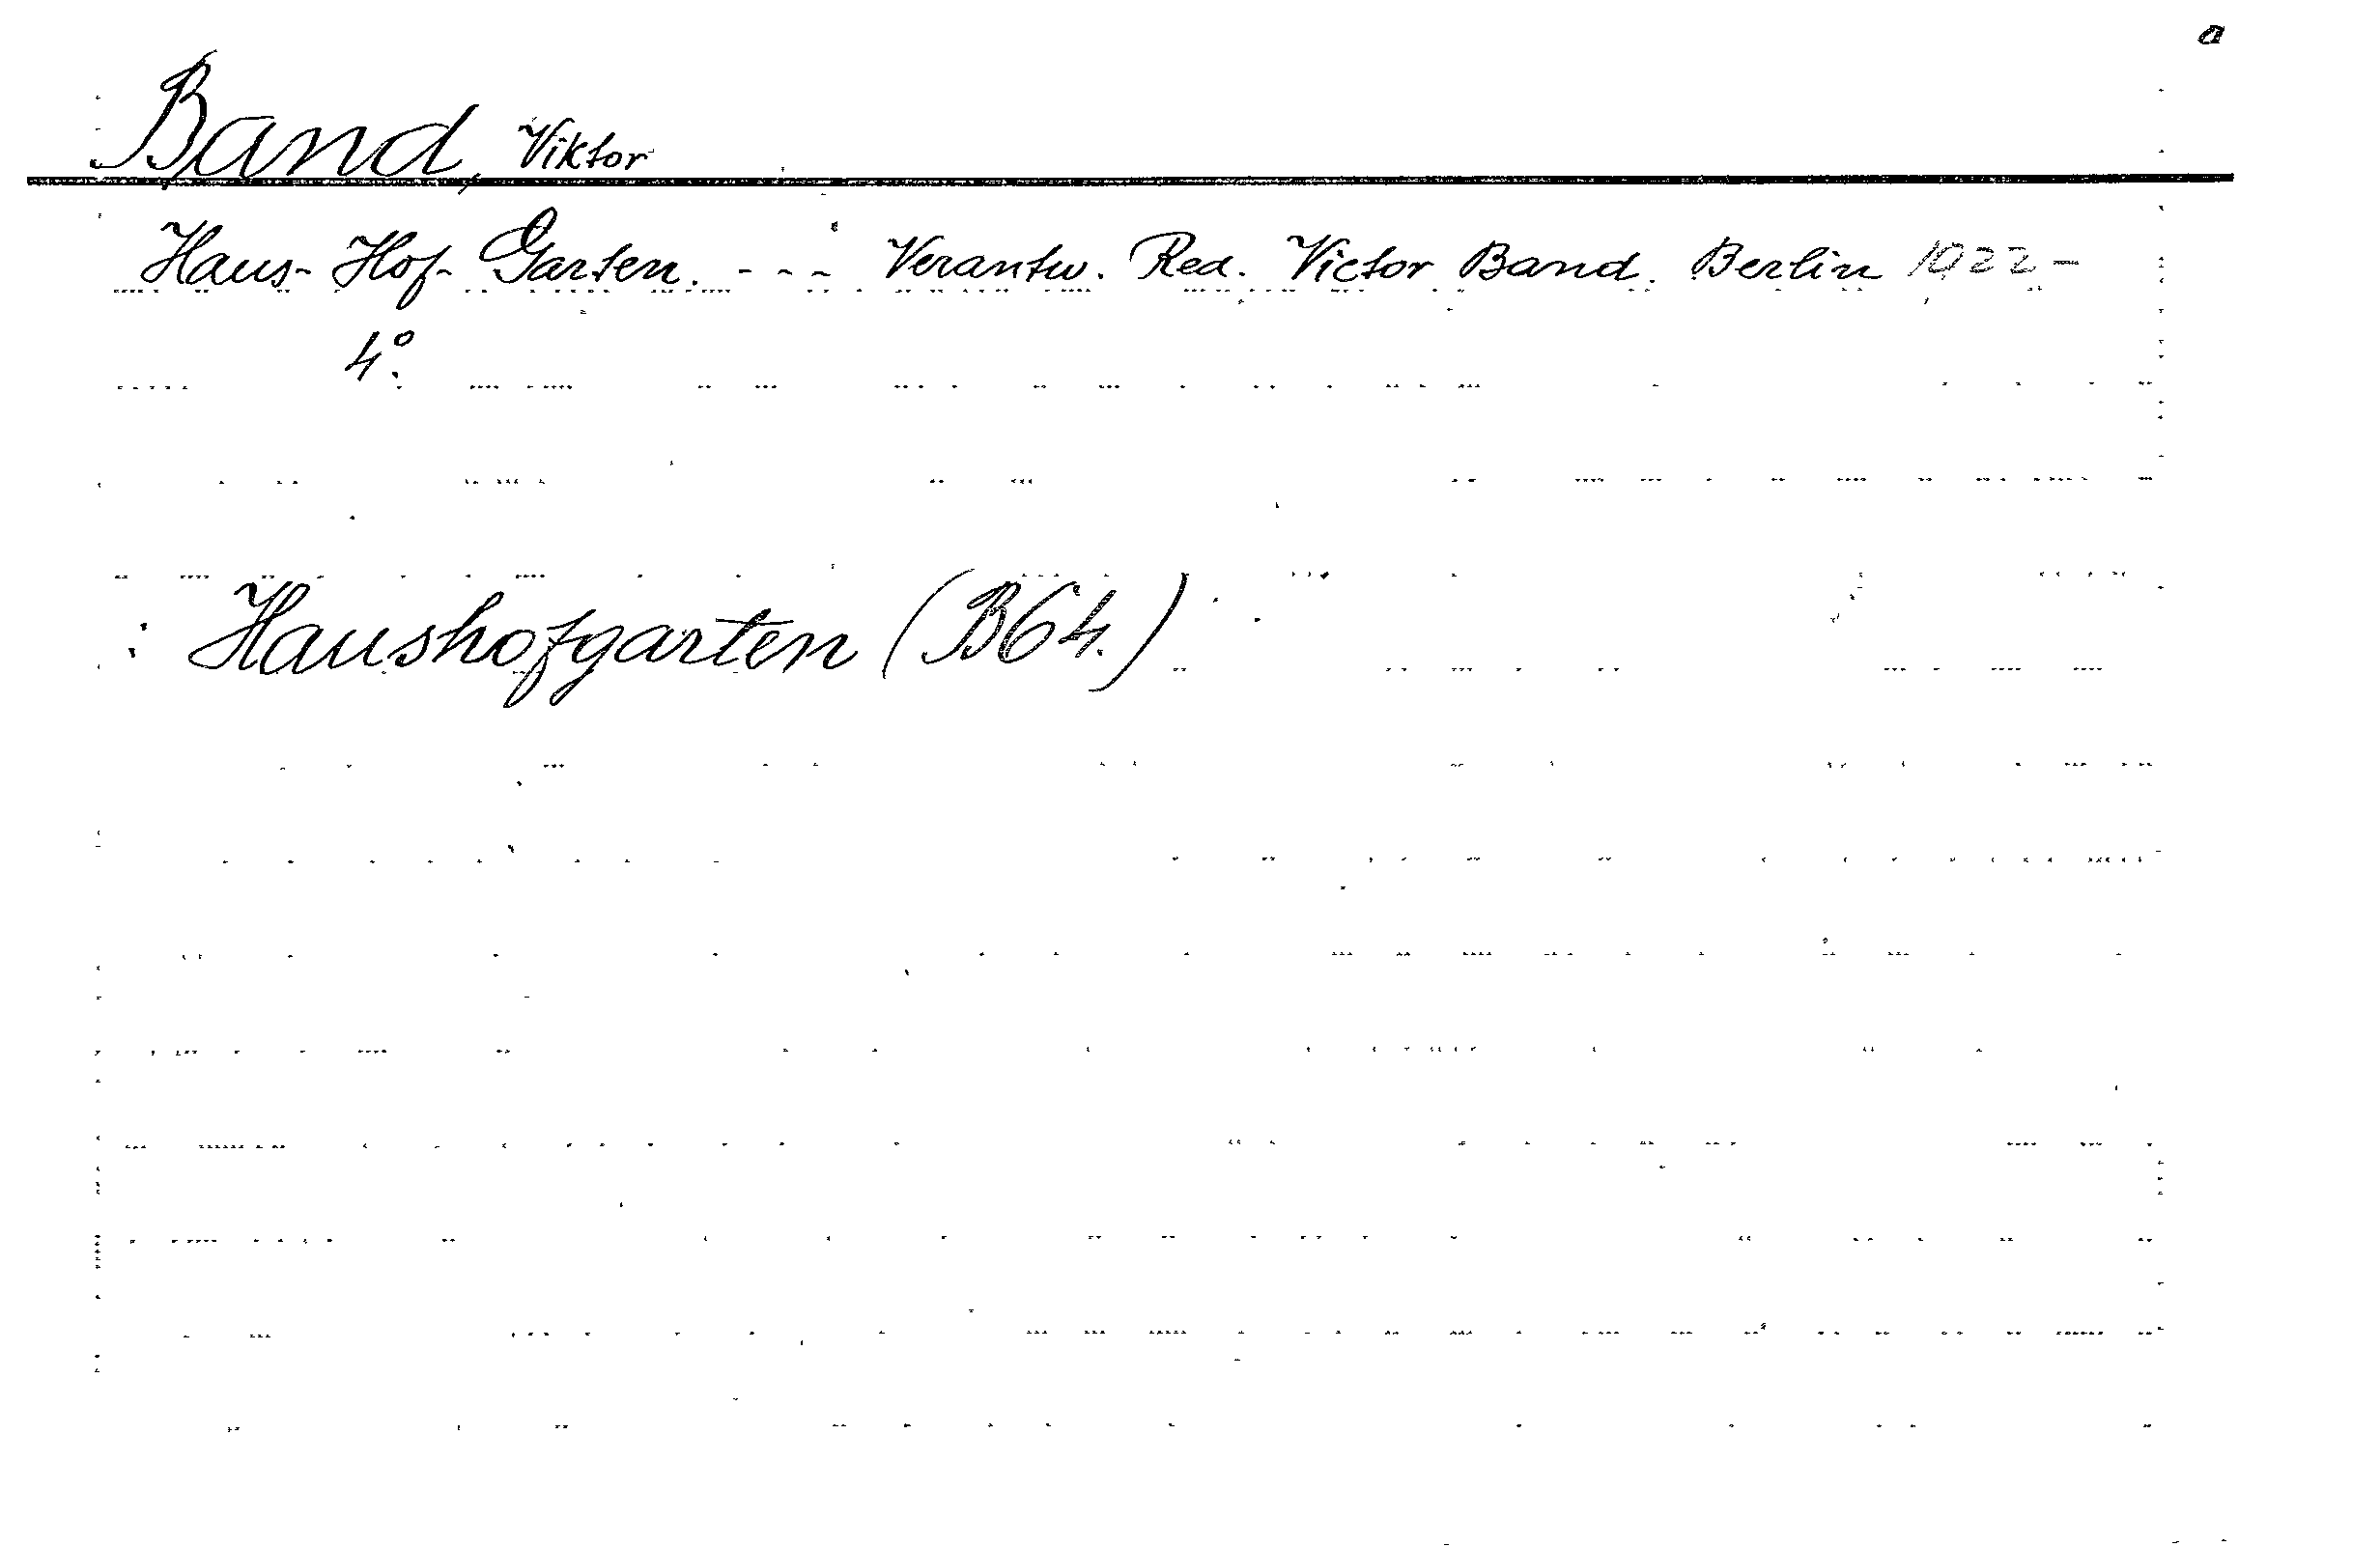 a
Band, Viktor
Haus- Hof- Garten. - - - Verantw. Red. Victor Band. Berlin 1922-
4°.
: Haushofgarten (B64.)